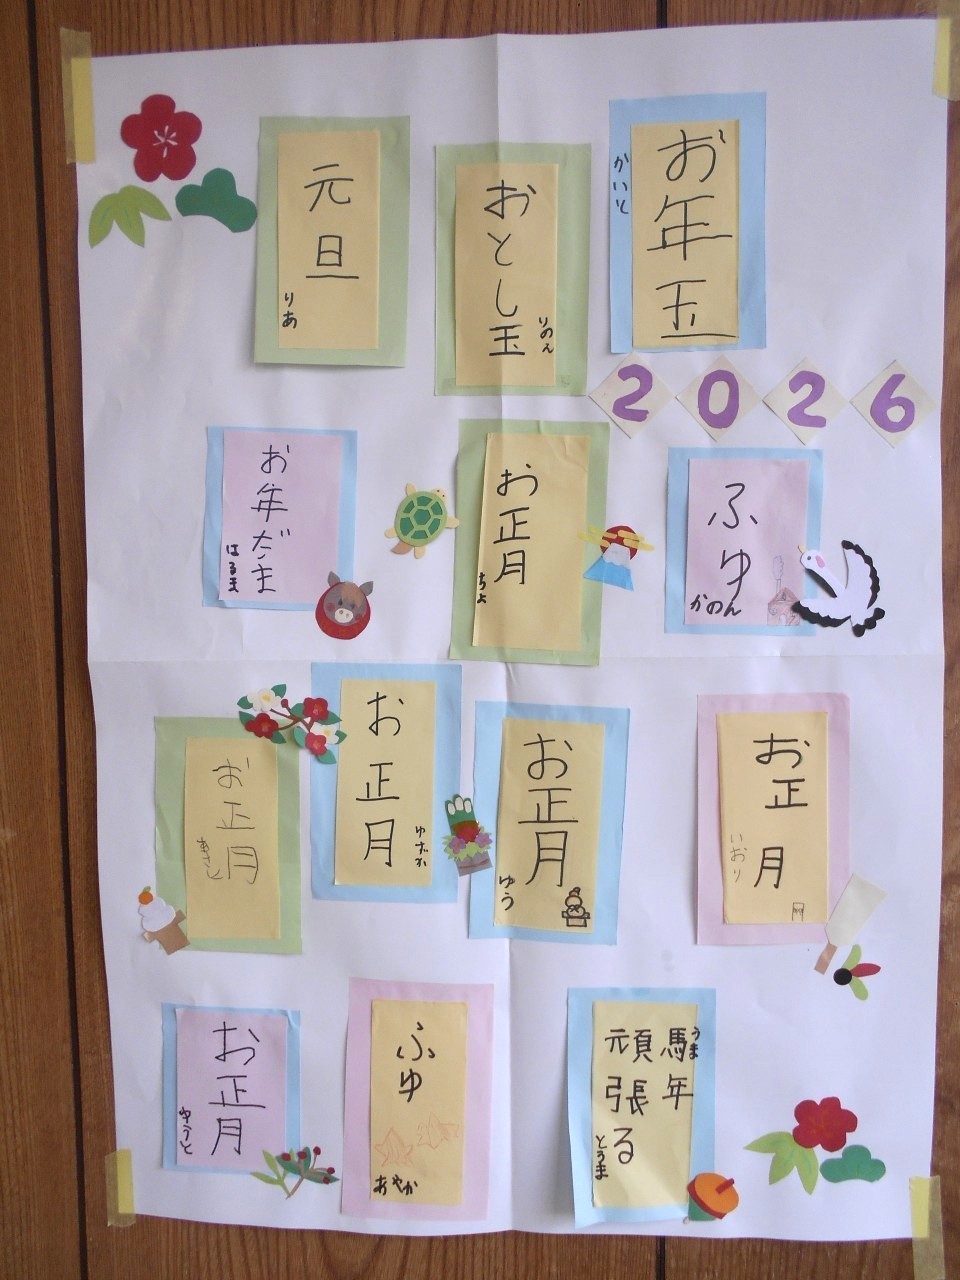 お年玉
かいと
おとし玉
りのん
元旦
りあ
2026
ふゆ
かのん
お正月
ちよ
お年だま
はるま
お正月
いおり
お正月
ゆう
お正月
ゆずか
お正月
あさと
馬年
うま
頑張る
とうま
ふゆ
あやか
お正月
ゆうと